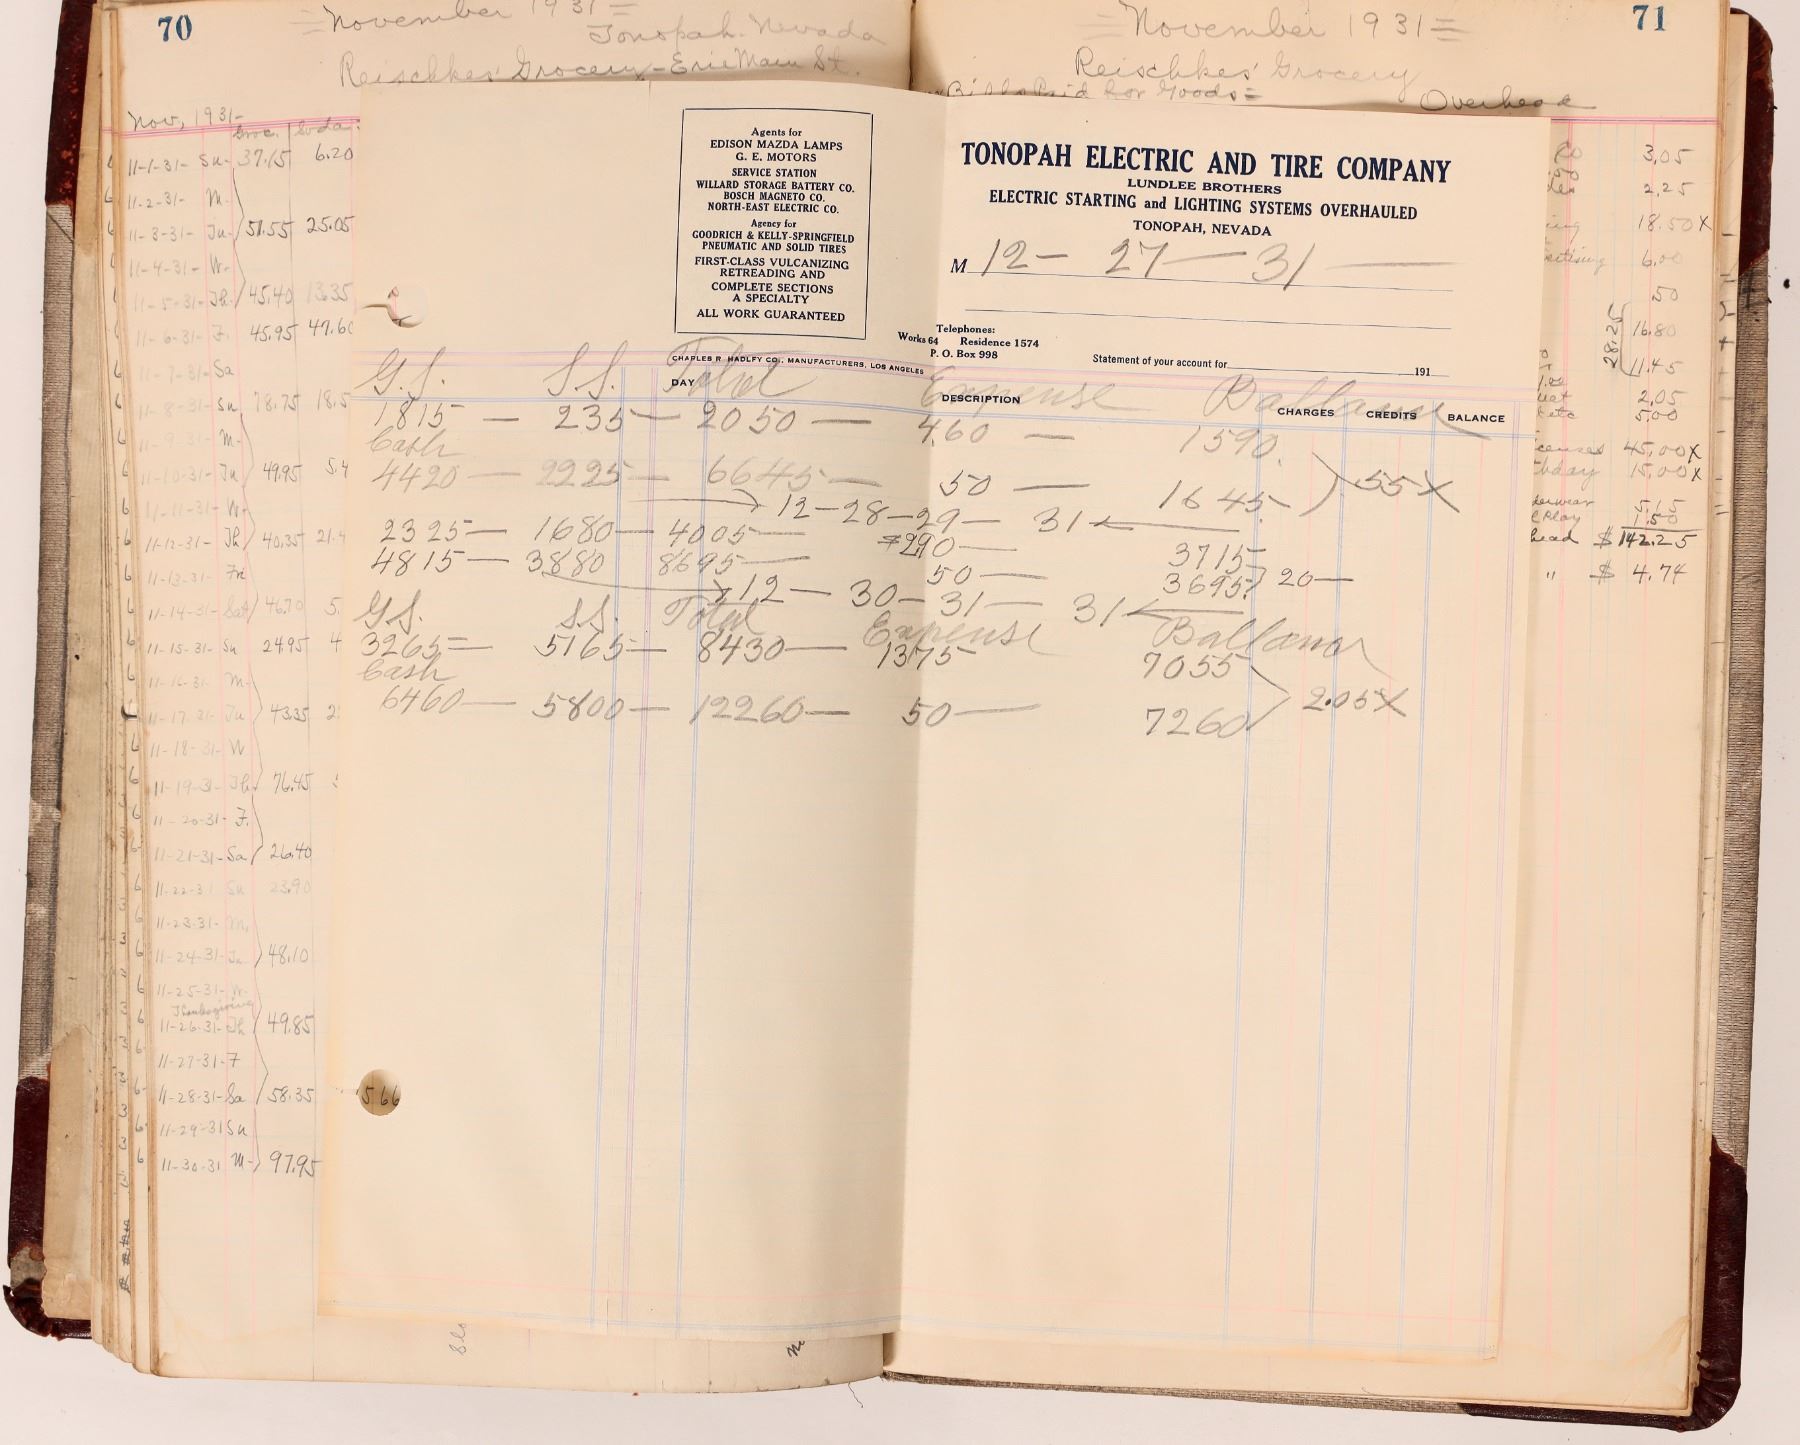 70
= November 1931 =
Tonopah - Nevada
Reischkes' Grocery - Erie Main St.
Nov, 1931-
Groc. Soda
11-1-31- Su- 37.15 6.20
11-2-31- M-
11-3-31- Tu- 51.55 25.05
11-4-31- W-
11-5-31- Th- 45.40 13.35
11-6-31- F. 45.95 47.60
11-7-31- Sa
11-8-31- Su 78.75 18.5
11-9-31- M-
11-10-31- Tu 49.95 5.4
11-11-31- W-
11-12-31- Th 40.35 21.4
11-13-31- Fri
11-14-31- Sat 46.70 5.
11-15-31- Su 24.95 4
11-16-31- M-
11-17-31- Tu 43.35 2
11-18-31- W
11-19-31- Th- 76.45
11-20-31- F.
11-21-31- Sa 26.40
11-22-31 Su 23.90
11-23-31- M,
11-24-31- Tu 48.10
11-25-31- W-
Thanksgiving
11-26-31- Th 49.85
11-27-31- F
11-28-31- Sa 58.35
11-29-31 Su
11-30-31 M- 97.95
566
Agents for
EDISON MAZDA LAMPS
G. E. MOTORS
SERVICE STATION
WILLARD STORAGE BATTERY CO.
BOSCH MAGNETO CO.
NORTH-EAST ELECTRIC CO.
Agency for
GOODRICH & KELLY-SPRINGFIELD
PNEUMATIC AND SOLID TIRES
FIRST-CLASS VULCANIZING
RETREADING AND
COMPLETE SECTIONS
A SPECIALTY
ALL WORK GUARANTEED
TONOPAH ELECTRIC AND TIRE COMPANY
LUNDLEE BROTHERS
ELECTRIC STARTING and LIGHTING SYSTEMS OVERHAULED
TONOPAH, NEVADA
M 12- 27-31-
Telephones:
Works 64 Residence 1574
P. O. Box 998
Statement of your account for 191
CHARLES R. HADLEY CO., MANUFACTURERS, LOS ANGELES
DAY DESCRIPTION CHARGES CREDITS BALANCE
G.S. S.S. Total Expense Ballance
1815 - 235 - 2050 - 4.60 - 1590.
Cash
4420 - 2225 - 6645 - 50 - 1645 55X
12-28-29- 31
2325 - 1680 - 4005 - 290 - 3715
4815 - 3880 8695 - 50 - 3695 20-
12- 30-31- 31
G.S. S.S. Total Expense Ballance
3265 - 5165 - 8430 - 1375 7055
Cash
6460 - 5800 - 12260 - 50 - 7260 2.05X
71
= November 1931 =
Reischkes' Grocery
Bills Paid for Goods =
Overhead
3.05
2.25
18.50X
6.00
50
16.80
28.25
11.45
2.05
etc 5.00
45.00X
15.00X
5.15
Play 1.50
head $142.25
" $ 4.74